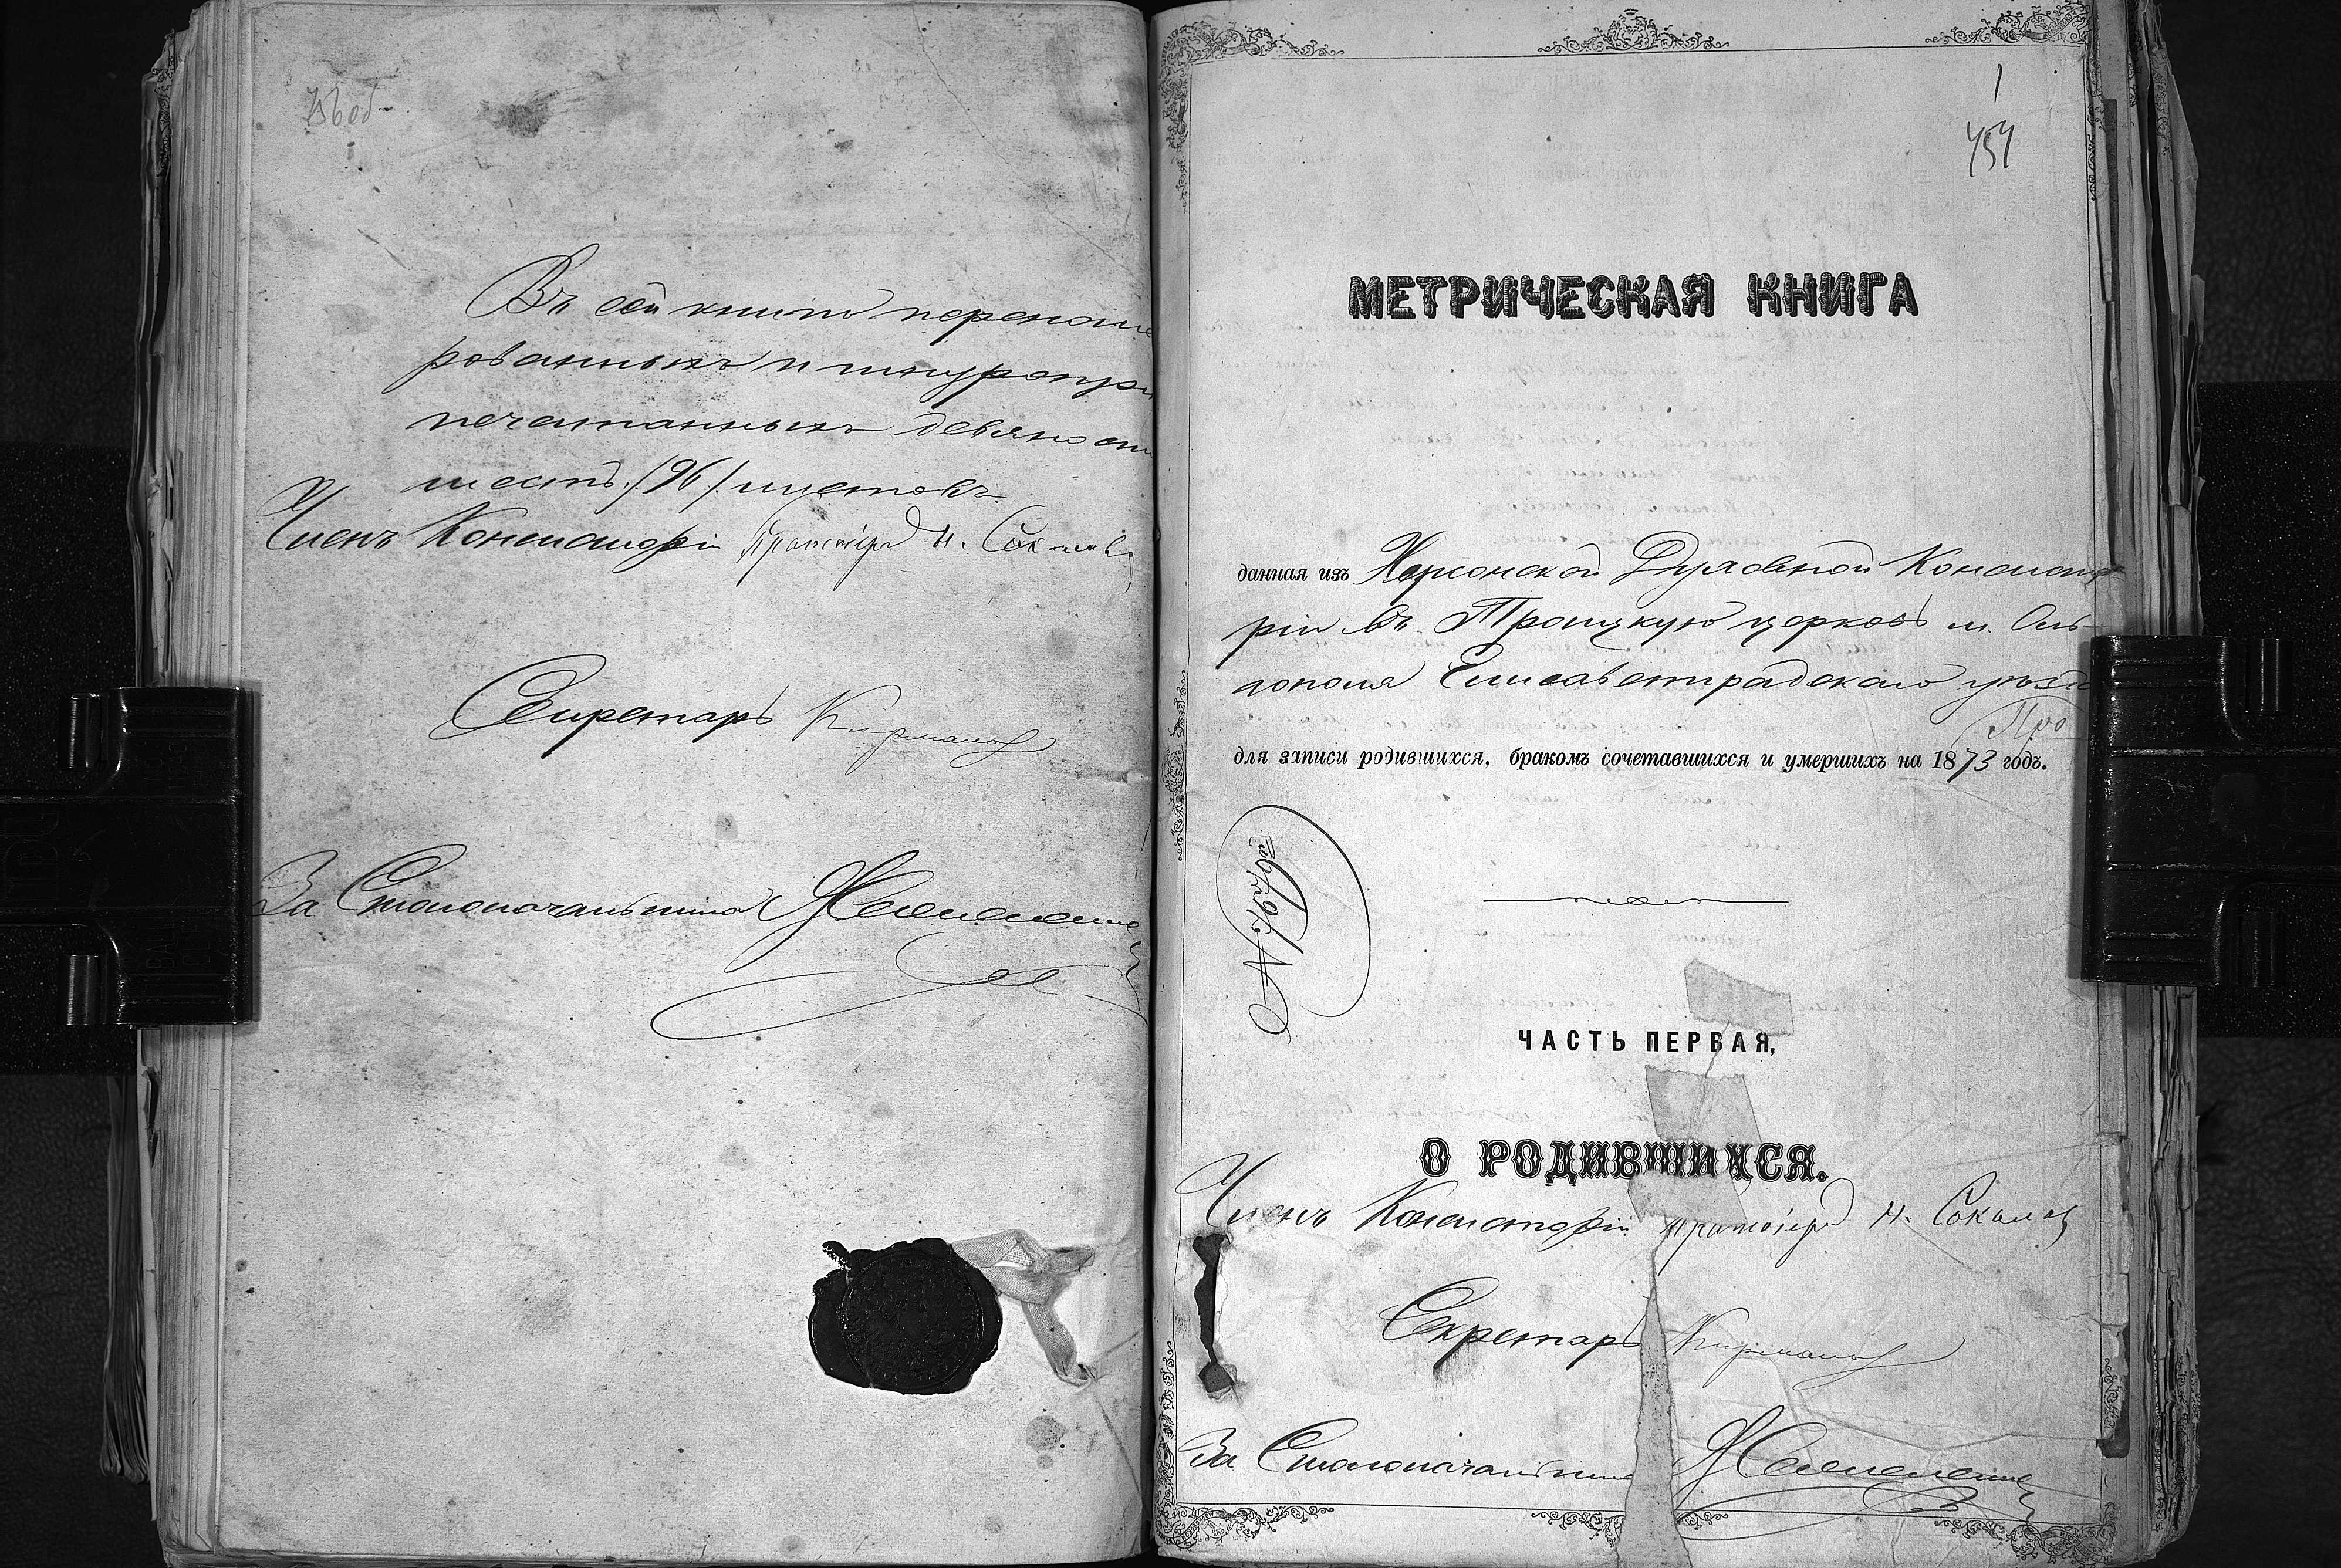 Въ сей книгѣ перенуме
рованныхъ и шнуропри
печатанныхъ девяносто
шесть /96/ листовъ
Членъ Консисторіи Протоіерей Н. Соколовъ
Секретарь
За Столоначальника
1
454
МЕТРИЧЕСКАЯ КНИГА
данная изъ Херсонской Духовной Консисто
ріи въ Троицкую церковь м. Оль
гополя Елисаветградскаго уѣзда
для записи родившихся, бракомъ сочетавшихся и умершихъ на 1873 годъ.
ЧАСТЬ ПЕРВАЯ,
О РОДИВШИХСЯ.
Членъ Консисторіи Протоіерей Н. Соколовъ
Секретарь
За Столоначальника